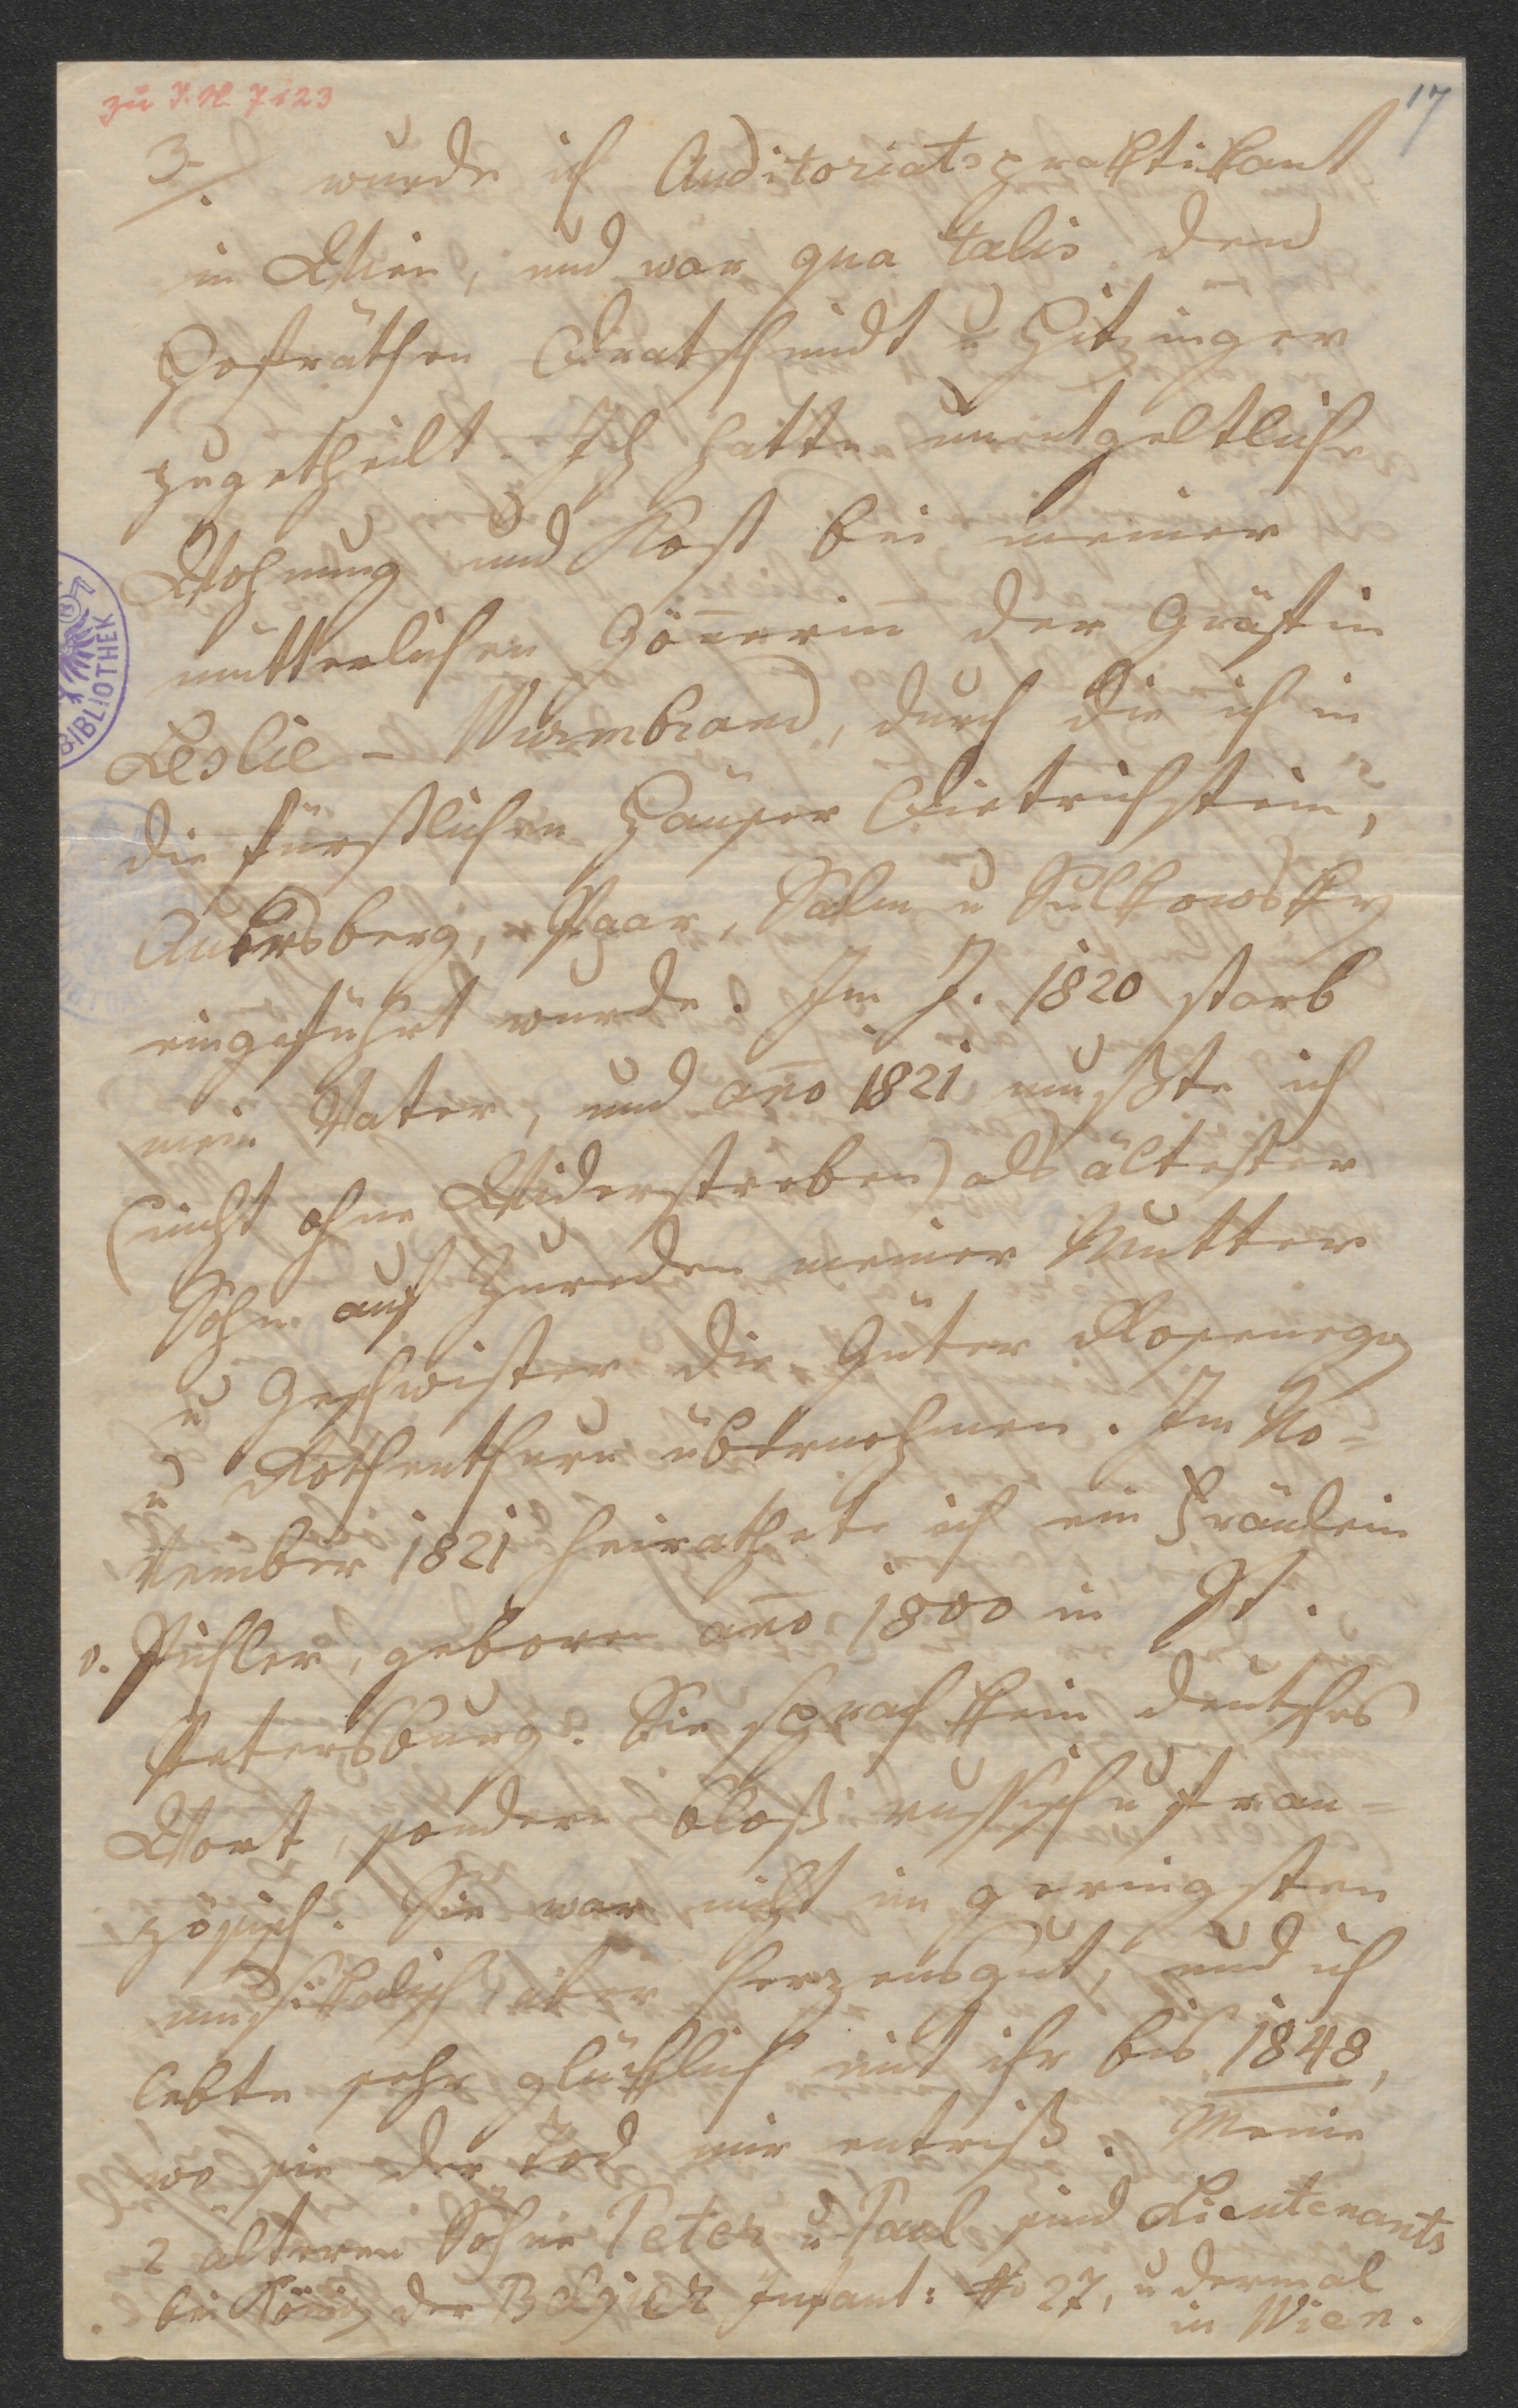 zu I.N. 7123
17
3./. wurde ich Auditoriatspraktikant
in Wien, und war qua talis den
Hofräthen Bratschmidt u Hitzinger
zugetheilt. Ich hatte unentgeltliche
Wohnung und Kost bei meiner
mütterlichen Gön̄erin der Gräfin
Leslie - Wurmbrand, durch die ich in
die fürstlichen Häuser Dietrichstein,
Auersberg, Paar, Salm u Sulkowsky
eingeführt wurde. Im J. 1820 starb
mein Vater, und an̄o 1821 mußte ich
(nicht ohne Widerstreben) als ältester
Sohn auf Zureden meiner Mutter
u Geschwister die Güter Rosenegg
u Rothenthurn übernehmen. Im No=
vember 1821 heirathete ich ein Fräulein
v. Pichler, geboren an̄o 1800 in St.
Petersburg. Sie sprach kein deutsches
Wort, sondern bloß russisch u fran-
zösisch. Sie war nicht im geringsten
musikalisch, aber herzensgut, und ich
lebte sehr glücklich mit ihr bis 1848,
wo sie der Tod mir entriß. Meine
2 älteren Söhne Peter u Paul sind Lieutenants
bei König der Belgier Infant: No 27, u dermal
in Wien.
BIBLIOTHEK